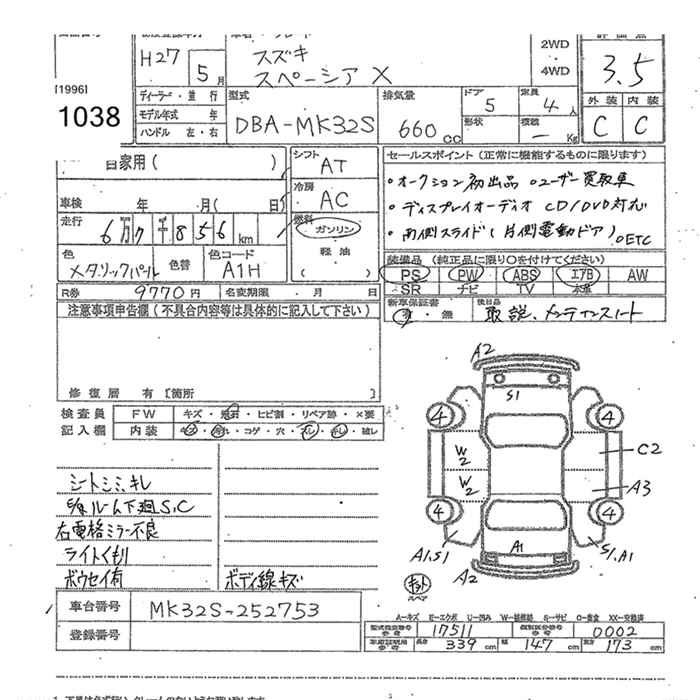 H27 5月
スズキ
スペーシア X
2WD
4WD
3.5
[1996]
1038
ディーラー・並行
モデル年式 年
ハンドル 左・右
型式
DBA-MK32S
排気量
660 cc
ドア
5
形状
定員
4人
積載
- Kg
外装 内装
C C
自家用 ( )
車検 年 月( 日)
走行
6万7千856 km
色
メタリックパール
色替
色コード
A1H
シフト
AT
冷房
AC
燃料
ガソリン
軽油
( )
セールスポイント(正常に機能するものに限ります)
・オークション初出品 ・ユーザー買取車
・ディスプレイオーディオ CD/DVD対応
・両側スライド(片側電動ドア) ・ETC
装備品(純正品に限り○を付けてください)
PS PW ABS エアB AW
SR ナビ TV 本革
R券 9770 円 名変期限 ・ 月 日
新車保証書
有・無
後日品
取説、メンテナンスノート
注意事項申告欄(不具合内容等は具体的に記入して下さい)
修復歴 有[箇所 ]
検査員
記入欄
FW キズ・飛石・ヒビ割・リペア跡・×要
内装 キズ・汚れ・コゲ・穴・スレ・キレ・破レ
シートシミ、キレ
E/gルーム下廻S.C
右電格ミラー不良
ライトくもり
ボウセイ有
ボディ線キズ
A2
S1
4 4
W2
W2
C2
A3
4 4
A1,S1
A1
S1,A1
A2
キット
スペア
車台番号 MK32S-252753
登録番号
A-キズ E-エクボ U-凹み W-補修跡 S-サビ C-腐食 XX-交換済
型式指定番号
参考
17511
類別区分番号
参考
0002
車庫証明用
参考
長さ 339 cm 幅 147 cm 高さ 173 cm